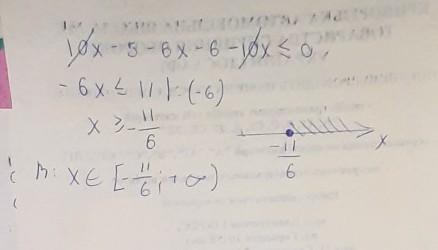 10x - 5 - 6x - 6 - 10x ≤ 0
- 6x ≤ 11 | : (-6)
x ≥ - 11/6
- 11/6 x
В: x ∈ [- 11/6; + ∞)